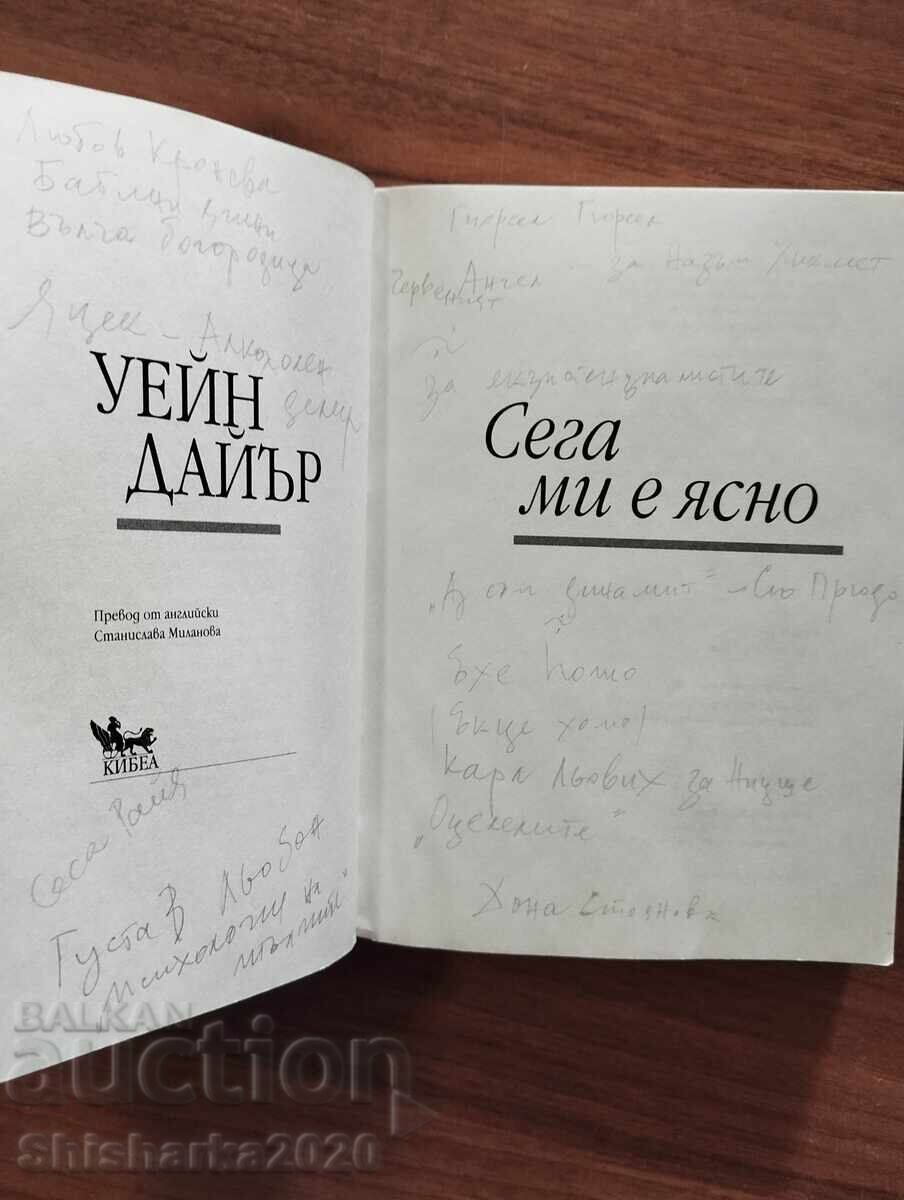 Любов Кронева
Вълча богородица
Яцек - Алкохолен
УЕЙН
ДАЙЪР
Превод от английски
Станислава Миланова
КИБЕА
Густав Льобон
психология на
тълпите"
Гюрсел
Червеният Ангел за Назъм Хикмет
за екзистенциалистите
Сега
ми е ясно
„Аз съм динамит" - Сю Придо
Ехе homo
(Екце хомо)
Карл Льових за Ницше
„Оцелелите"
Стоянова
BALKAN
auction
Shisharka2020